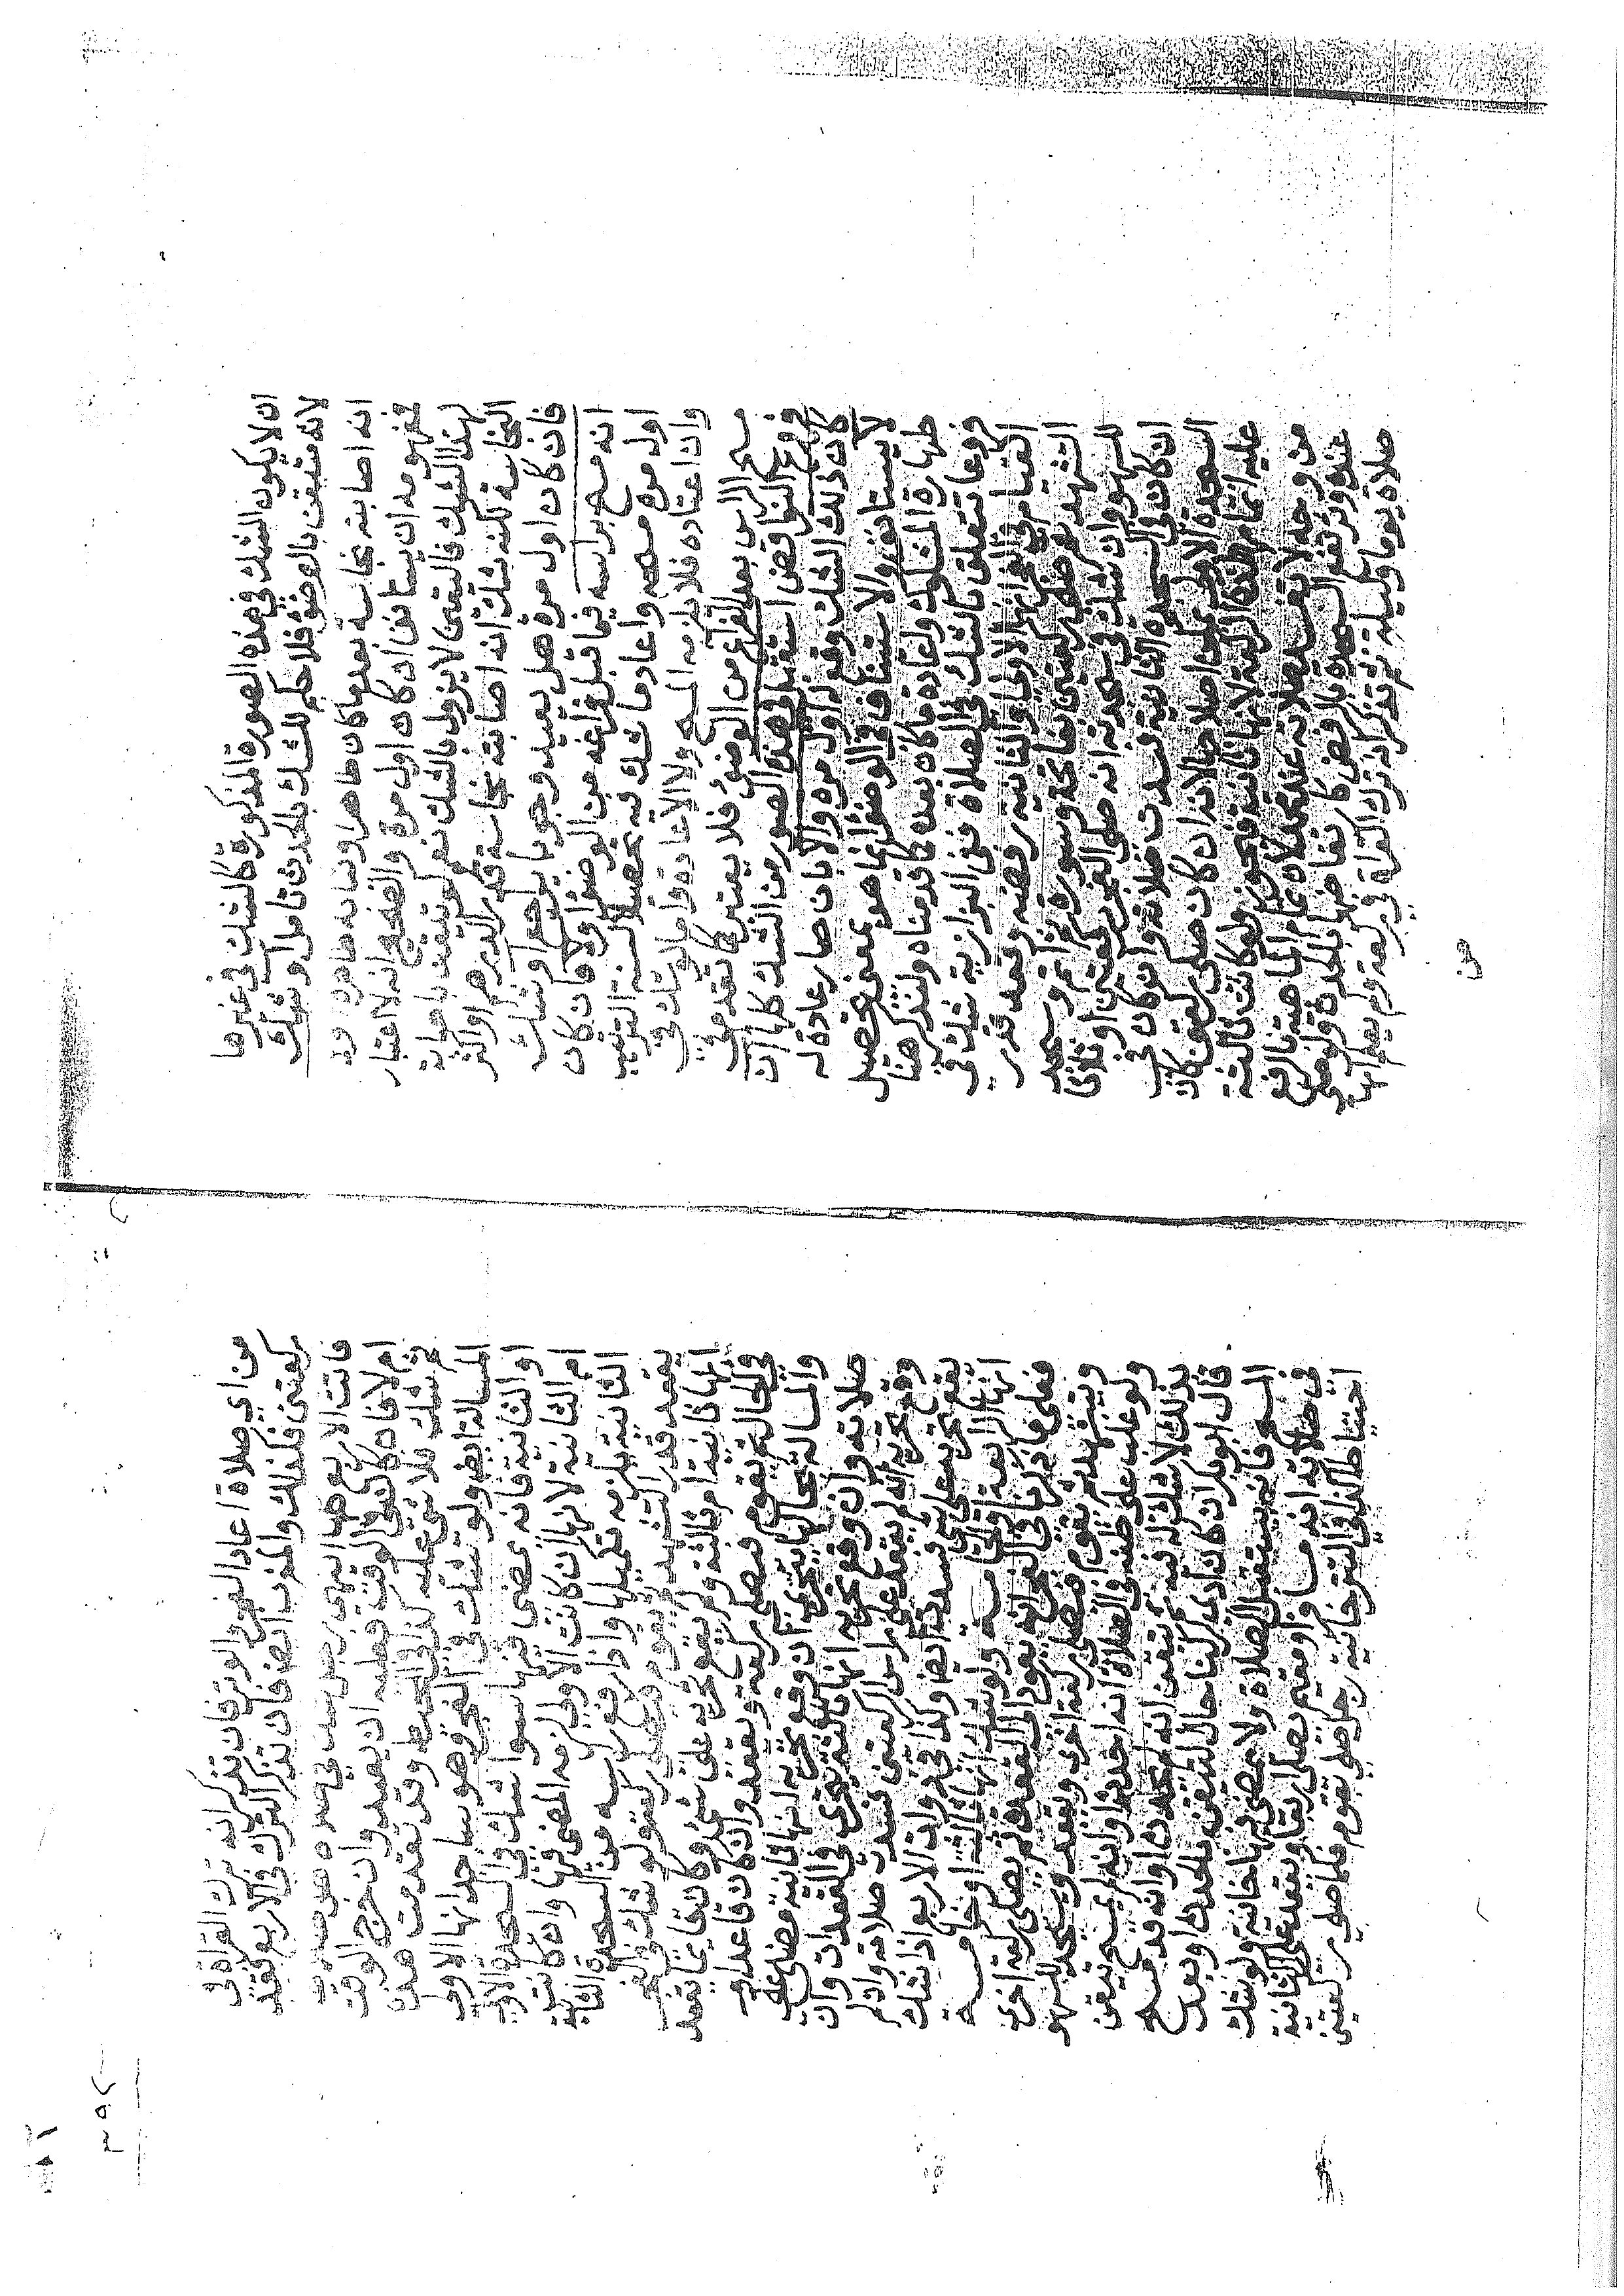 ان لا يكون الشك في هذه الصورة المذكورة كالشك في غيرها
لانه متيقن بالوضوء فلا حكم للشك بالحدث تامل او شك
انه اصابته نجاسة بعد ما كان طاهرا وثيابه طاهرة
مفهومه ان يستانف اذ كان اول مرة والصحيح انه لا اعتبار
لهذا الشك فاليقين لا يزول بالشك نعم لو تيقن باصابة
النجاسة لكنه شك انه اصابته نجاسة قدر الدرهم او اكثر
فان كان اول مرة هل يعيد وجوبا يراجع او شك
انه مسح براسه فيما قبل فراغه من الوضوء اولا فان كان
اول مرة مسحه واعاد ما شك فيه تحصيلا لسنة الترتيب
وان اعتاده فلا يلزمه المسح ولا الاعادة واما لو شك في
مسح الراس بعد الفراغ من الوضوء فلا يعتبر كما تقدم في
فروع النواقض استقبل في هذه الصور من الشك كلها ان
كان ذلك الشك وقع له اول مرة والا بان صار عادة له
لا يستانف والاستيناف في الوضوء انما هو بمعنى تحصيل
طهارة المشكوك واعادة ما كان بعده كما قدمناه ولنذكر هنا
فروعا تتعلق بالشك في الصلاة ففي البزازية شك في
القيام في الفجر انها الاولى او الثانية رفضه وقعد قدر
التشهد ثم صلى ركعتين بفاتحة وسورة ثم اتم وسجد
للسهو وان شك في سجدته انه صلى الفجر ركعتين او ثلاثا
ان كان في السجدة الثانية فسدت صلاته وان كان في
السجدة الاولى يمكن اصلاحها لانه ان كان صلى ركعتين كان
عليه اتمام هذه الركعة لانها ثانية فيجوز ولو كانت ثالثة
من وجه لا تفسد صلاته عند محمد لان تمام الماهية بالرفع
عنده فترتفع السجدة بالرفض كارتفاضها بالحدث ولو صلى
صلاة يوم وليلة ثم تذكر انه ترك القراة في ركعة ولم يعلم انها
من
من اي صلاة اعاد الفجر والوتر فان تذكر انه ترك القراة في
ركعتين فكذلك والمغرب ايضا فان تذكر الترك في الاربع فقد
فاتت الاربع
ام لا فان كان في الوقت فعليه ان يعيد وان خرج الوقت
ثم شك فلا شيء عليه كذا في المحيط وقد تقدمت هذه
المسالة ايضا ولو شك في الفجر وهو ساجد انها الاولى
او الثانية فانه يمضي فيها سوا شك في السجدة الاولى
ام الثانية لانها ان كانت الاولى لزمه المضي فيها وان كانت
الثانية يلزمه تكميلها واذا رفع راسه من السجدة الثانية
يقعد قدر التشهد ثم يقوم فيصلي ركعة ولو شك في الفجر
انها ثانية ام ثالثة ولم يقع تحريه على شي وكان قائما يقعد
في الحال ثم يقوم فيصلي ركعة ويقعد وان كان قاعدا و
والمسالة بحالها يتحرى ان وقع تحريه انها ثانية مضى على
صلاته وان وقع تحريه انها ثالثة يتحرى في القعدات وان
وقع تحريه انه لم يقعد على راس الركعتين فسدت صلاته وان لم
يقع تحريه على شي فسدت ايضا وكذا في ذوات الاربع اذا شك
انها الرابعة او الخامسة ولو شك انها ثالثة او خامسة
فعلى ما ذكرنا في الفجر انه يعود الى القعدة ثم يصلي ركعة اخرى
ويتشهد ثم يقوم فيصلي ركعة اخرى ويقعد ويسجد للسهو
ولو غلب على ظنه في الصلاة انه احدث او انه لم يمسح تيقن
بذلك لا شك له فيه ثم تيقن انه لم يحدث او انه قد مسح
قال ابو بكر ان كان ادى ركنا حال التيقن بالحدث او بعدم
المسح فانه يستقبل الصلاة والا يمضي فيها خانية ولو شك
في صلاته انه مسافر او مقيم يصلي اربعا ويقعد على الثانية
احتياطا كذا في التترخانية رجل صلى بقوم فلما صلى ركعتين